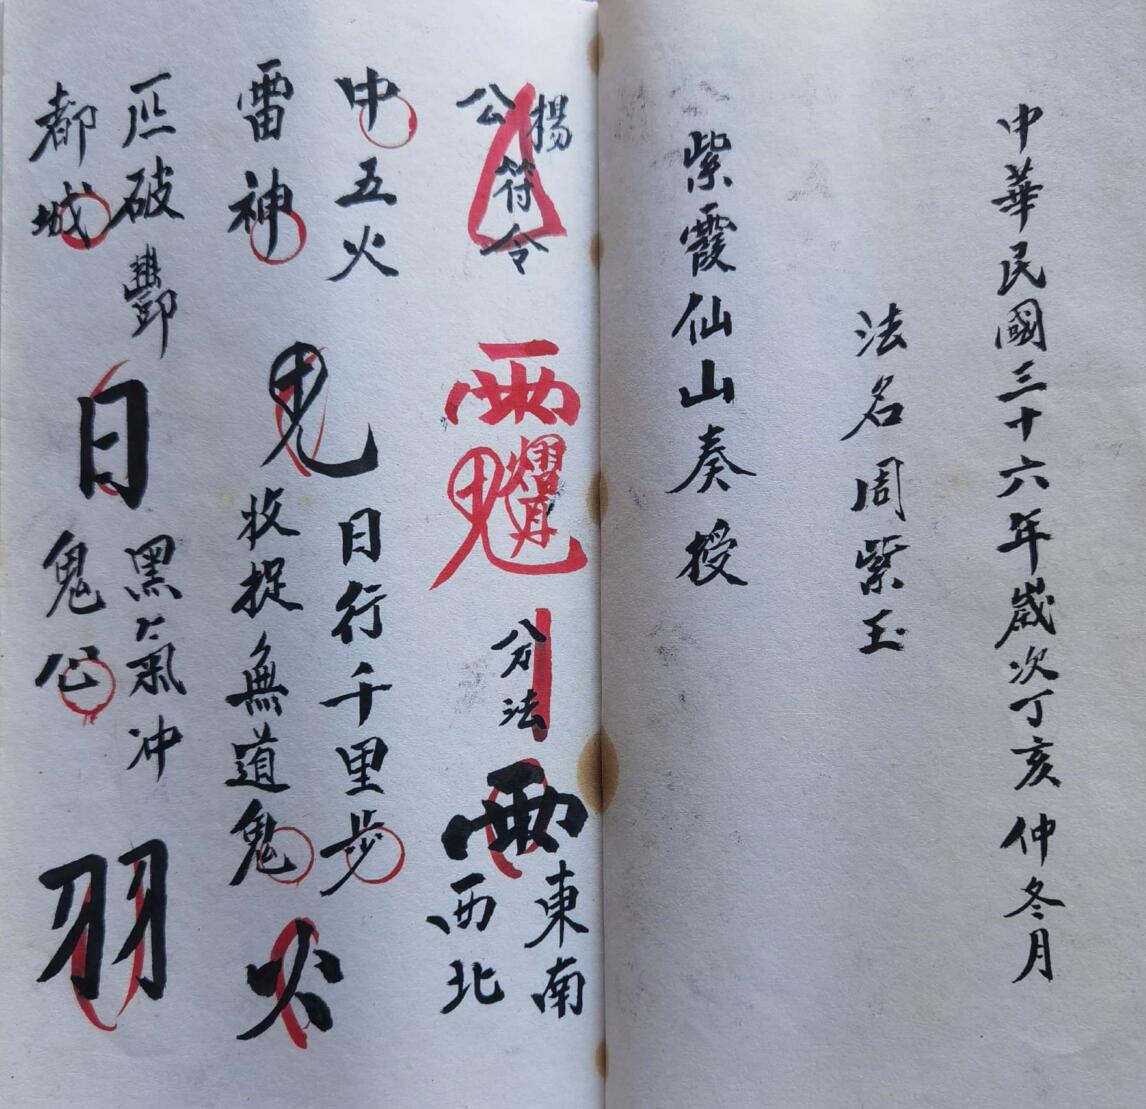 中華民國三十六年歲次丁亥仲冬月
法名周紫玉
紫霞仙山奏授
楊公符令
八分法
東南
西北
中五火
日行千里步
雷神
收捉無道鬼
破酆
都城
日
黑氣冲
鬼心
羽